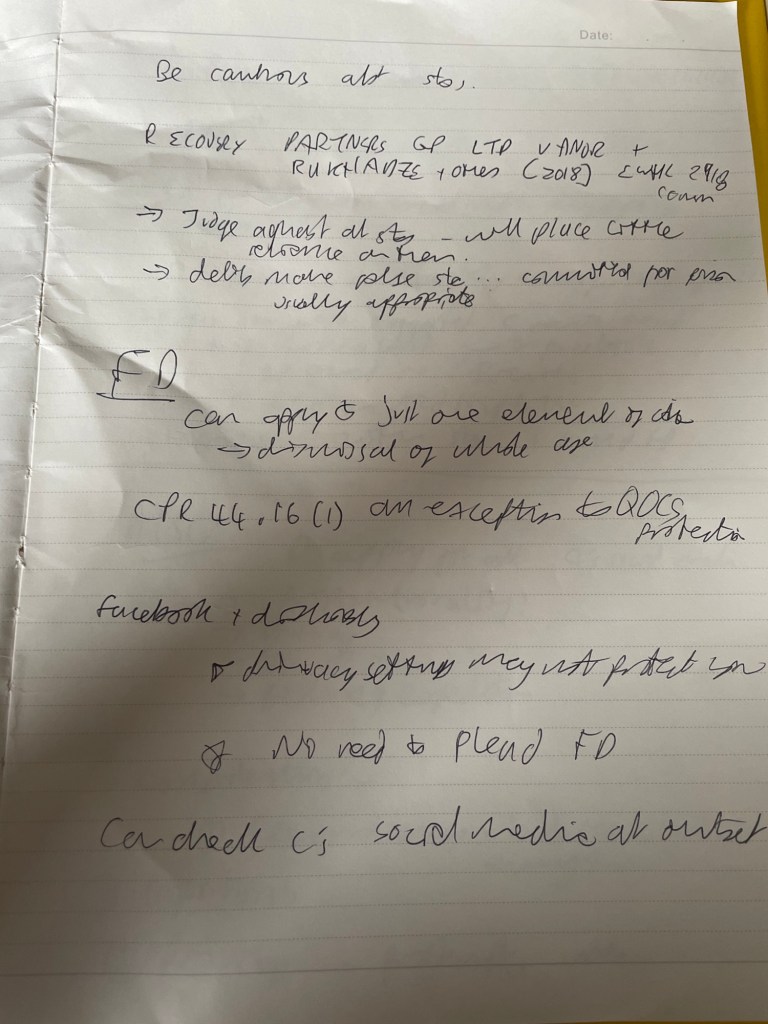 Date:
Be cautious abt sts.
RECOVERY PARTNERS GP LTD V ANOR +
RUKHADZE + others (2018) EWHC 2918
Comm
→ Judge against alt sts – will place little
reliance on them.
→ delib make false sts ... committal for prison
usually appropriate
FD
can apply to just one element of
→ dismissal of whole case
CPR 44.16(1) an exception to QOCS
protection
Facebook +
privacy settings may not protect you
No need to Plead FD
Can check C's social media at outset